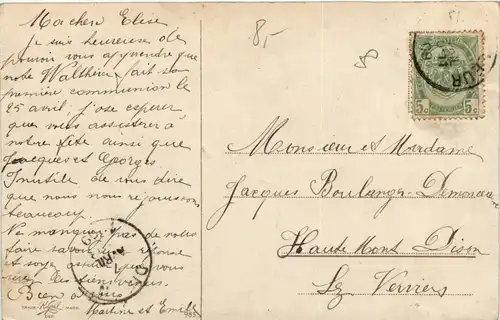 Ma chère Elise,
Je suis heureuse de
pouvoir vous apprendre que
notre Walthère fait sa
première communion le
25 avril; j'ose espérer,
que vous assisterez à
notre fête ainsi que
Jacques et Georges.
Inutile de vous dire
que nous nous réjouissons
beaucoup.
Ne manquez pas de nous
faire savoir une réponse
et soyez que vous
serez les bienvenus.
Bien à vous
Martine et Emile
8,-
50
5c 5c
Monsieur et Madame
Jacques Boulanger-Demonceau
Haute Mont Dison
Lez Verviers